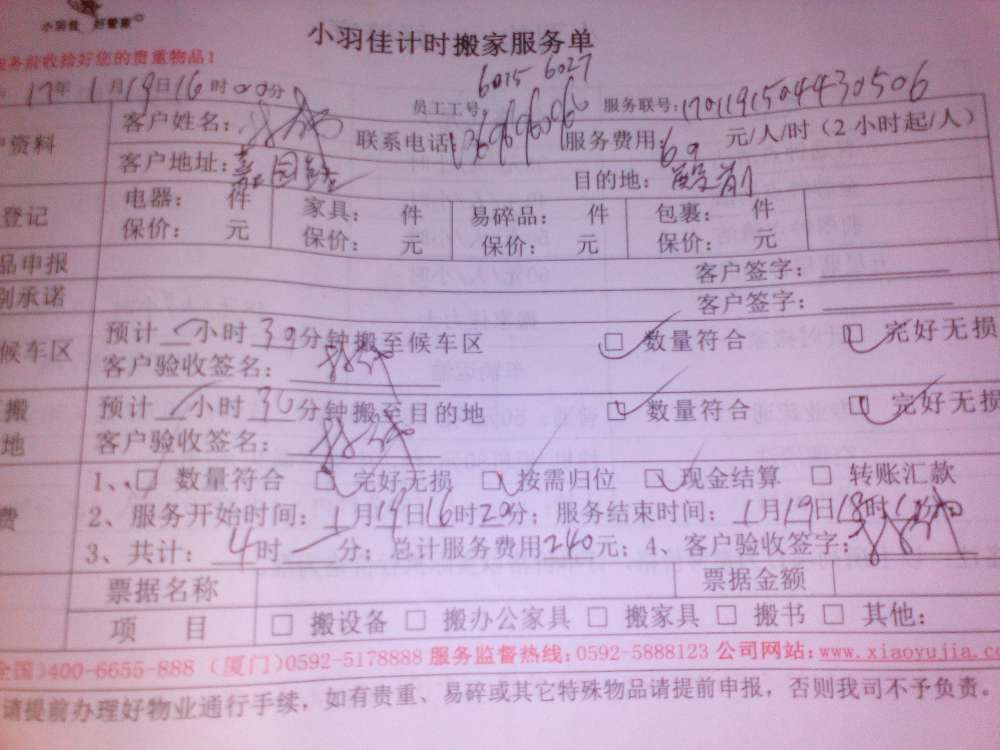 小羽佳 好管家
小羽佳计时搬家服务单
服务前收拾好您的贵重物品!
17年 1月19日16时00分 员工工号: 6015 6027 服务联号: 1701191504430506
户资料 客户姓名: 联系电话: 服务费用: 60 元/人/时(2小时起/人)
客户地址: 目的地:
登记 电器: 件 家具: 件 易碎品: 件 包裹: 件
保价: 元 保价: 元 保价: 元 保价: 元
品申报 客户签字:
别承诺 客户签字:
候车区 预计 小时 30分钟搬至候车区 数量符合 完好无损
客户验收签名:
搬 预计 小时 30分钟搬至目的地 数量符合 完好无损
地 客户验收签名:
费 1、 数量符合 完好无损 按需归位 现金结算 转账汇款
2、服务开始时间: 1月19日16时20分; 服务结束时间: 1月19日18时 分
3、共计: 4时 分; 总计服务费用240元; 4、客户验收签字:
票据名称 票据金额
项 目 □ 搬设备 □ 搬办公家具 □ 搬家具 □ 搬书 □ 其他:
全国)400-6655-888 (厦门)0592-5178888 服务监督热线:0592-5888123 公司网站:www.xiaoyujia.co
请提前办理好物业通行手续，如有贵重、易碎或其它特殊物品请提前申报，否则我司不予负责。